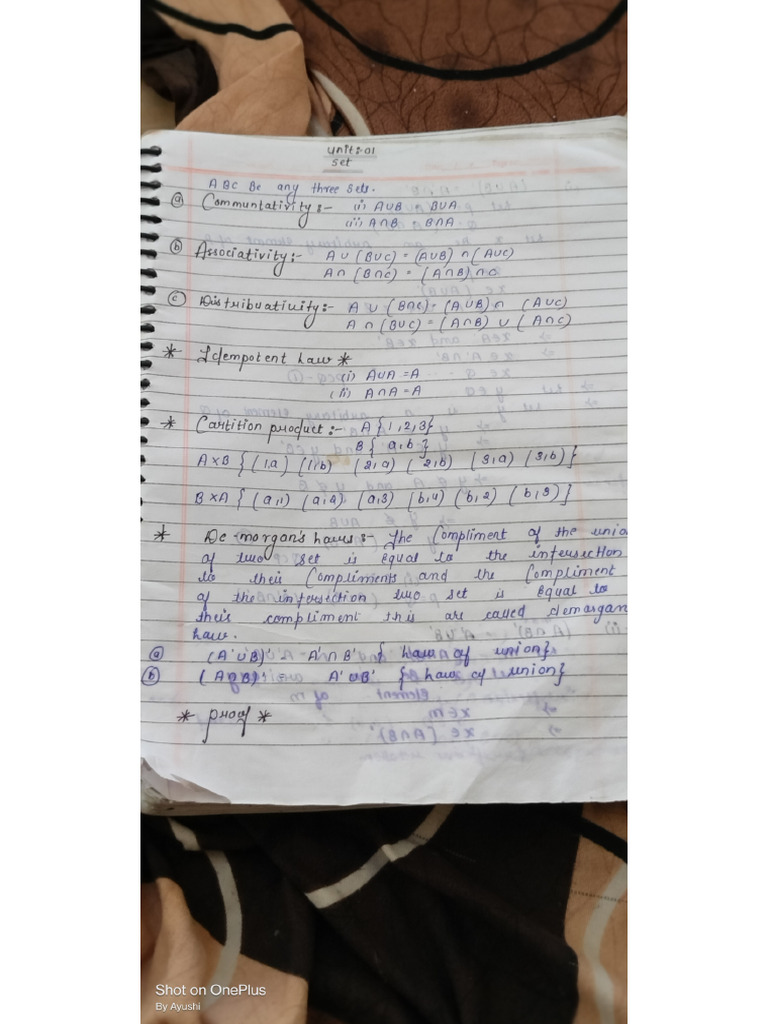 Unit:01
Set
ABC Be any three sets.
(a) Communtativity:- (i) AUB = BUA
(ii) A∩B = B∩A
(b) Associativity:- A U (BUC) = (AUB) ∩ (AUC)
A ∩ (B∩C) = (A∩B) ∩ C
(c) Distribuatiuity:- A U (B∩C) = (AUB) ∩ (AUC)
A ∩ (BUC) = (A∩B) U (A∩C)
* Idempotent Law *
(i) AUA = A
(ii) A∩A = A
* Cartition product:- A {1,2,3}
B { a,b }
A×B { (1,a) (1,b) (2,a) (2,b) (3,a) (3,b)}
B×A { (a,1) (a,2) (a,3) (b,1) (b,2) (b,3)}
* De-morgan's Laws:- The Compliment of the unio
of two set is Equal to the intersection
to their Compliments and the Compliment
of the intersection two set is Equal to
their compliment this are called demorgan
Law.
(a) (A'UB)' = A'∩B' { Law of union}
(b) (A∩B)' = A'UB' { Law of union}
* proof *
Shot on OnePlus
By Ayushi